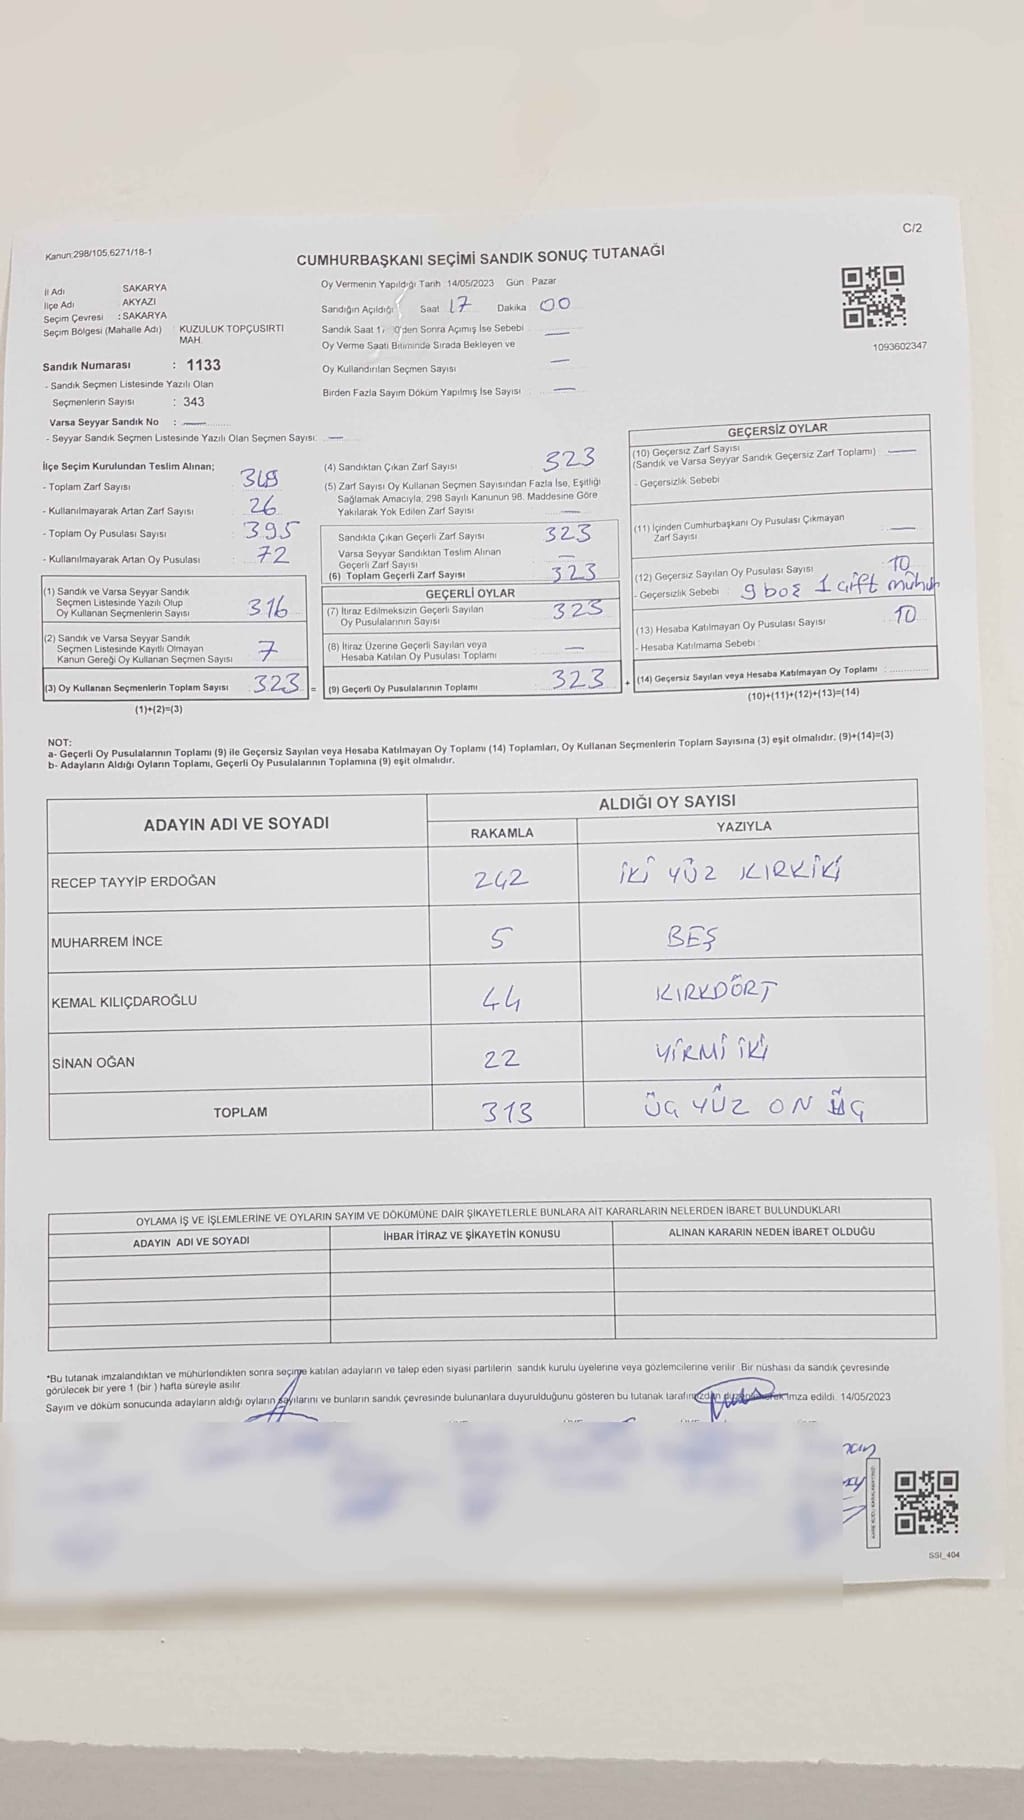 C/2
Kanun:298/105,6271/18-1
CUMHURBAŞKANI SEÇİMİ SANDIK SONUÇ TUTANAĞI
İl Adı SAKARYA
İlçe Adı AKYAZI
Seçim Çevresi : SAKARYA
Seçim Bölgesi (Mahalle Adı) : KUZULUK TOPÇUSIRTI
MAH.
Sandık Numarası : 1133
- Sandık Seçmen Listesinde Yazılı Olan
Seçmenlerin Sayısı : 343
Varsa Seyyar Sandık No : —
- Seyyar Sandık Seçmen Listesinde Yazılı Olan Seçmen Sayısı: —
Oy Vermenin Yapıldığı Tarih 14/05/2023 Gün Pazar
Sandığın Açıldığı Saat 17 Dakika 00
Sandık Saat 17 'den Sonra Açımış İse Sebebi —
Oy Verme Saati Bitiminde Sırada Bekleyen ve
Oy Kullandırılan Seçmen Sayısı —
Birden Fazla Sayım Döküm Yapılmış İse Sayısı —
1093602347
İlçe Seçim Kurulundan Teslim Alınan;
- Toplam Zarf Sayısı
- Kullanılmayarak Artan Zarf Sayısı 26
- Toplam Oy Pusulası Sayısı : 395
- Kullanılmayarak Artan Oy Pusulası : 72
(1) Sandık ve Varsa Seyyar Sandık
Seçmen Listesinde Yazılı Olup
Oy Kullanan Seçmenlerin Sayısı 316
(2) Sandık ve Varsa Seyyar Sandık
Seçmen Listesinde Kayıtlı Olmayan
Kanun Gereği Oy Kullanan Seçmen Sayısı 7
(3) Oy Kullanan Seçmenlerin Toplam Sayısı 323 =
(1)+(2)=(3)
(4) Sandıktan Çıkan Zarf Sayısı 323
(5) Zarf Sayısı Oy Kullanan Seçmen Sayısından Fazla İse, Eşitliği
Sağlamak Amacıyla, 298 Sayılı Kanunun 98. Maddesine Göre
Yakılarak Yok Edilen Zarf Sayısı —
Sandıkta Çıkan Geçerli Zarf Sayısı 323
Varsa Seyyar Sandıktan Teslim Alınan
Geçerli Zarf Sayısı —
(6) Toplam Geçerli Zarf Sayısı 323
GEÇERLİ OYLAR
(7) İtiraz Edilmeksizin Geçerli Sayılan
Oy Pusulalarının Sayısı 323
(8) İtiraz Üzerine Geçerli Sayılan veya
Hesaba Katılan Oy Pusulası Toplamı —
(9) Geçerli Oy Pusulalarının Toplamı 323 +
GEÇERSİZ OYLAR
(10) Geçersiz Zarf Sayısı
(Sandık ve Varsa Seyyar Sandık Geçersiz Zarf Toplamı) —
- Geçersizlik Sebebi
(11) İçinden Cumhurbaşkanı Oy Pusulası Çıkmayan
Zarf Sayısı —
(12) Geçersiz Sayılan Oy Pusulası Sayısı 10
- Geçersizlik Sebebi : 9 boş 1 çift mühür
(13) Hesaba Katılmayan Oy Pusulası Sayısı 10
- Hesaba Katılmama Sebebi :
(14) Geçersiz Sayılan veya Hesaba Katılmayan Oy Toplamı :
(10)+(11)+(12)+(13)=(14)
NOT:
a- Geçerli Oy Pusulalarının Toplamı (9) ile Geçersiz Sayılan veya Hesaba Katılmayan Oy Toplamı (14) Toplamları, Oy Kullanan Seçmenlerin Toplam Sayısına (3) eşit olmalıdır. (9)+(14)=(3)
b- Adayların Aldığı Oyların Toplamı, Geçerli Oy Pusulalarının Toplamına (9) eşit olmalıdır.
ADAYIN ADI VE SOYADI
ALDIĞI OY SAYISI
RAKAMLA YAZIYLA
RECEP TAYYİP ERDOĞAN 242 İKİ YÜZ KIRKİKİ
MUHARREM İNCE 5 BEŞ
KEMAL KILIÇDAROĞLU 44 KIRKDÖRT
SİNAN OĞAN 22 YİRMİ İKİ
TOPLAM 313 ÜÇ YÜZ ON ÜÇ
OYLAMA İŞ VE İŞLEMLERİNE VE OYLARIN SAYIM VE DÖKÜMÜNE DAİR ŞİKAYETLERLE BUNLARA AİT KARARLARIN NELERDEN İBARET BULUNDUKLARI
ADAYIN ADI VE SOYADI İHBAR İTİRAZ VE ŞİKAYETİN KONUSU ALINAN KARARIN NEDEN İBARET OLDUĞU
*Bu tutanak imzalandıktan ve mühürlendikten sonra seçime katılan adayların ve talep eden siyasi partilerin sandık kurulu üyelerine veya gözlemcilerine verilir. Bir nüshası da sandık çevresinde
görülecek bir yere 1 (bir) hafta süreyle asılır
Sayım ve döküm sonucunda adayların aldığı oyların sayılarını ve bunların sandık çevresinde bulunanlara duyurulduğunu gösteren bu tutanak imza edildi. 14/05/2023
SSI_404